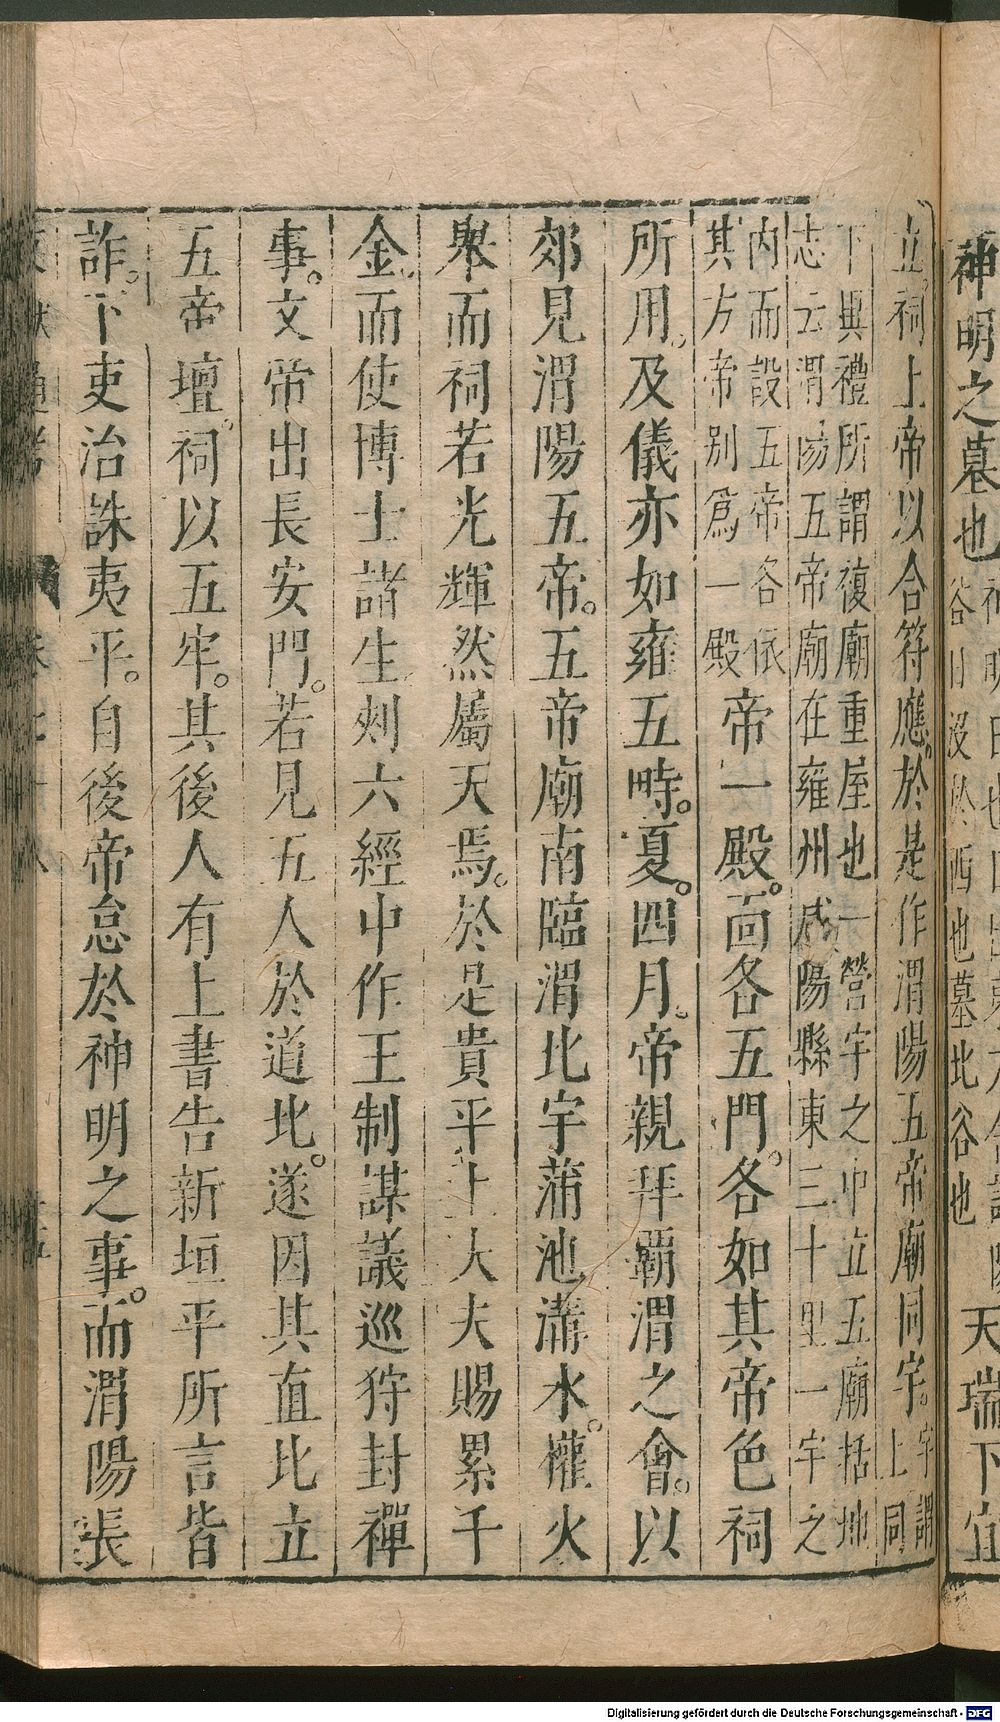 神明之墓也
谷日沒於西也墓北谷也
天瑞下宜
立。祠上帝以合符應。於是作渭陽五帝廟同宇。
宇謂
上同
下異禮所謂復廟重屋也一營宇之中立五廟括地
志云渭陽五帝廟在雍州咸陽縣東三十里一宇之
内而設五帝各依
其方帝別爲一殿
帝一殿。面各五門。各如其帝色祠
所用。及儀亦如雍五時。夏。四月。帝親拜霸渭之會。以
郊見渭陽五帝。五帝廟南臨渭北宇蒲池溝水。權火
舉而祠若光輝然屬天焉。於是貴平上大夫賜累千
金。而使博士諸生刺六經中作王制謀議巡狩封禪
事。文帝出長安門。若見五人於道北。遂因其直北立
五帝壇。祠以五牢。其後人有上書告新垣平所言皆
詐。下吏治誅夷平。自後帝怠於神明之事。而渭陽長
Digitalisierung gefördert durch die Deutsche Forschungsgemeinschaft - DFG